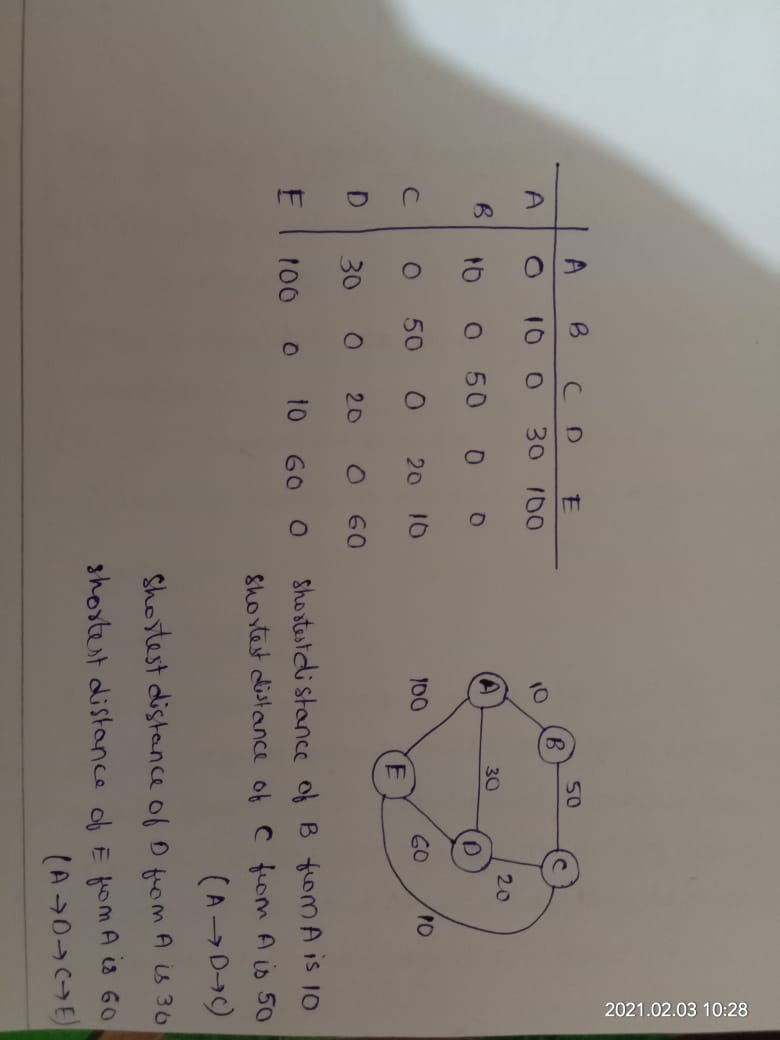 A B C D E
A 0 10 0 30 100
B 10 0 50 0 0
C 0 50 0 20 10
D 30 0 20 0 60
E 100 0 10 60 0
A
B
C
D
E
10
50
30
20
100
60
10
shortest distance of B from A is 10
shortest distance of C from A is 50
(A → D → C)
shortest distance of D from A is 30
shortest distance of E from A is 60
(A → D → C → E)
2021.02.03 10:28